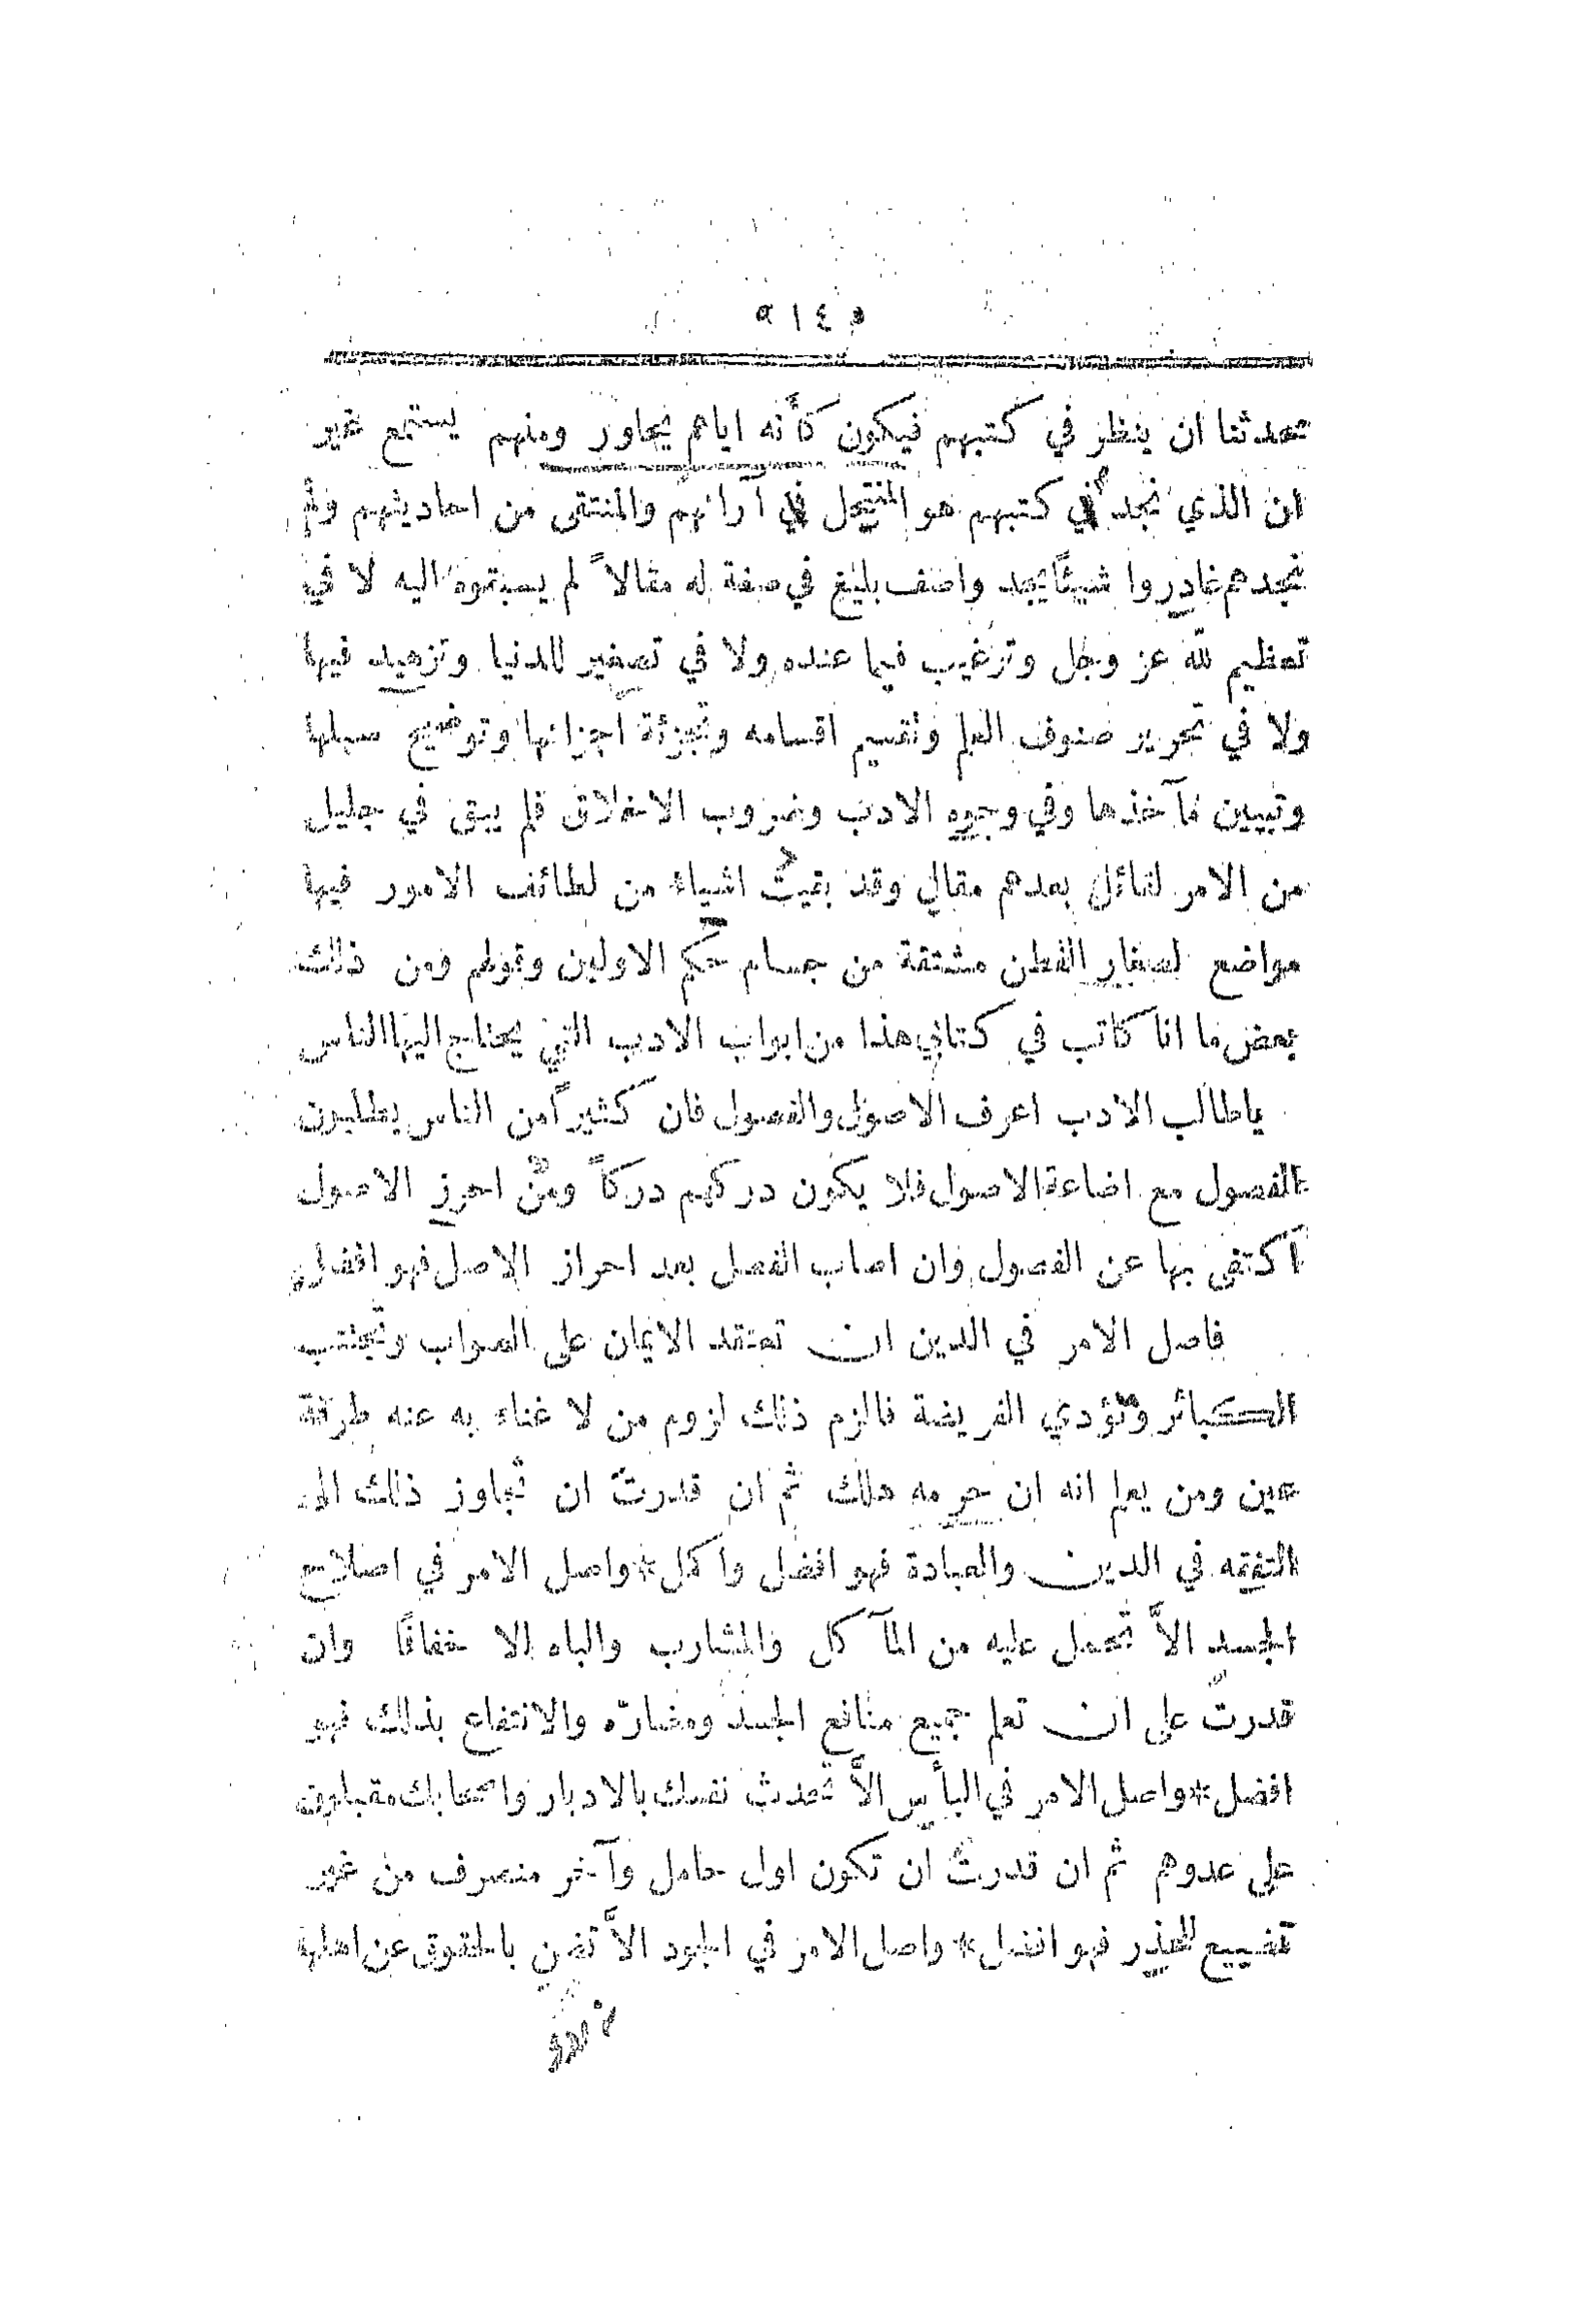 ٩١٤٥
محدثنا ان ينظر في كتبهم فيكون كأنه اياهم يحاور ومنهم يستمع غير
ان الذي نجد في كتبهم هو المنتحل في آرائهم والمنتقى من احاديثهم ولم
نجدهم غادروا شيئاً يجد واصف بليغ في صفة له مقالاً لم يسبقوه اليه لا في
تعظيم لله عز وجل وترغيب فيما عنده ولا في تصغير للدنيا وتزهيد فيها
ولا في تحرير صنوف العلم وتقسيم اقسامه وتجزئة اجزائها وتوضيح سبلها
وتبيين مآخذها وفي وجوه الادب وضروب الاخلاق فلم يبق في جليل
من الامر لقائل بعدهم مقال وقد بقيت اشياء من لطائف الامور فيها
مواضع لصغار الفطن مشتقة من جسام حكم الاولين وقولهم ومن ذلك
بعض ما انا كاتب في كتابي هذا من ابواب الادب التي يحتاج اليها الناس
ياطالب الادب اعرف الاصول والفصول فان كثيراً من الناس يطلبون
الفصول مع اضاعة الاصول فلا يكون دركهم دركاً ومن احرز الاصول
اكتفى بها عن الفصول وان اصاب الفصل بعد احراز الاصل فهو افضل
فاصل الامر في الدين ان تعتقد الايمان على الصواب وتجتنب
الكبائر وتؤدي الفريضة فالزم ذلك لزوم من لا غناء به عنه طرفة
عين ومن يعلم انه ان حرمه هلك ثم ان قدرت ان تجاوز ذلك الى
التفقه في الدين والعبادة فهو افضل واكمل * واصل الامر في اصلاح
الجسد الاَّ تحمل عليه من المآكل والمشارب والباه الا خفافاً وان
قدرت على ان تعلم جميع منافع الجسد ومضارّه والانتفاع بذلك فهو
افضل * واصل الامر في البأس الاَّ تحدث نفسك بالادبار واصحابك مقبلون
على عدوهم ثم ان قدرت ان تكون اول حامل وآخر منصرف من غير
تضييع للحذر فهو افضل * واصل الامر في الجود الاَّ تضن بالحقوق عن اهلها